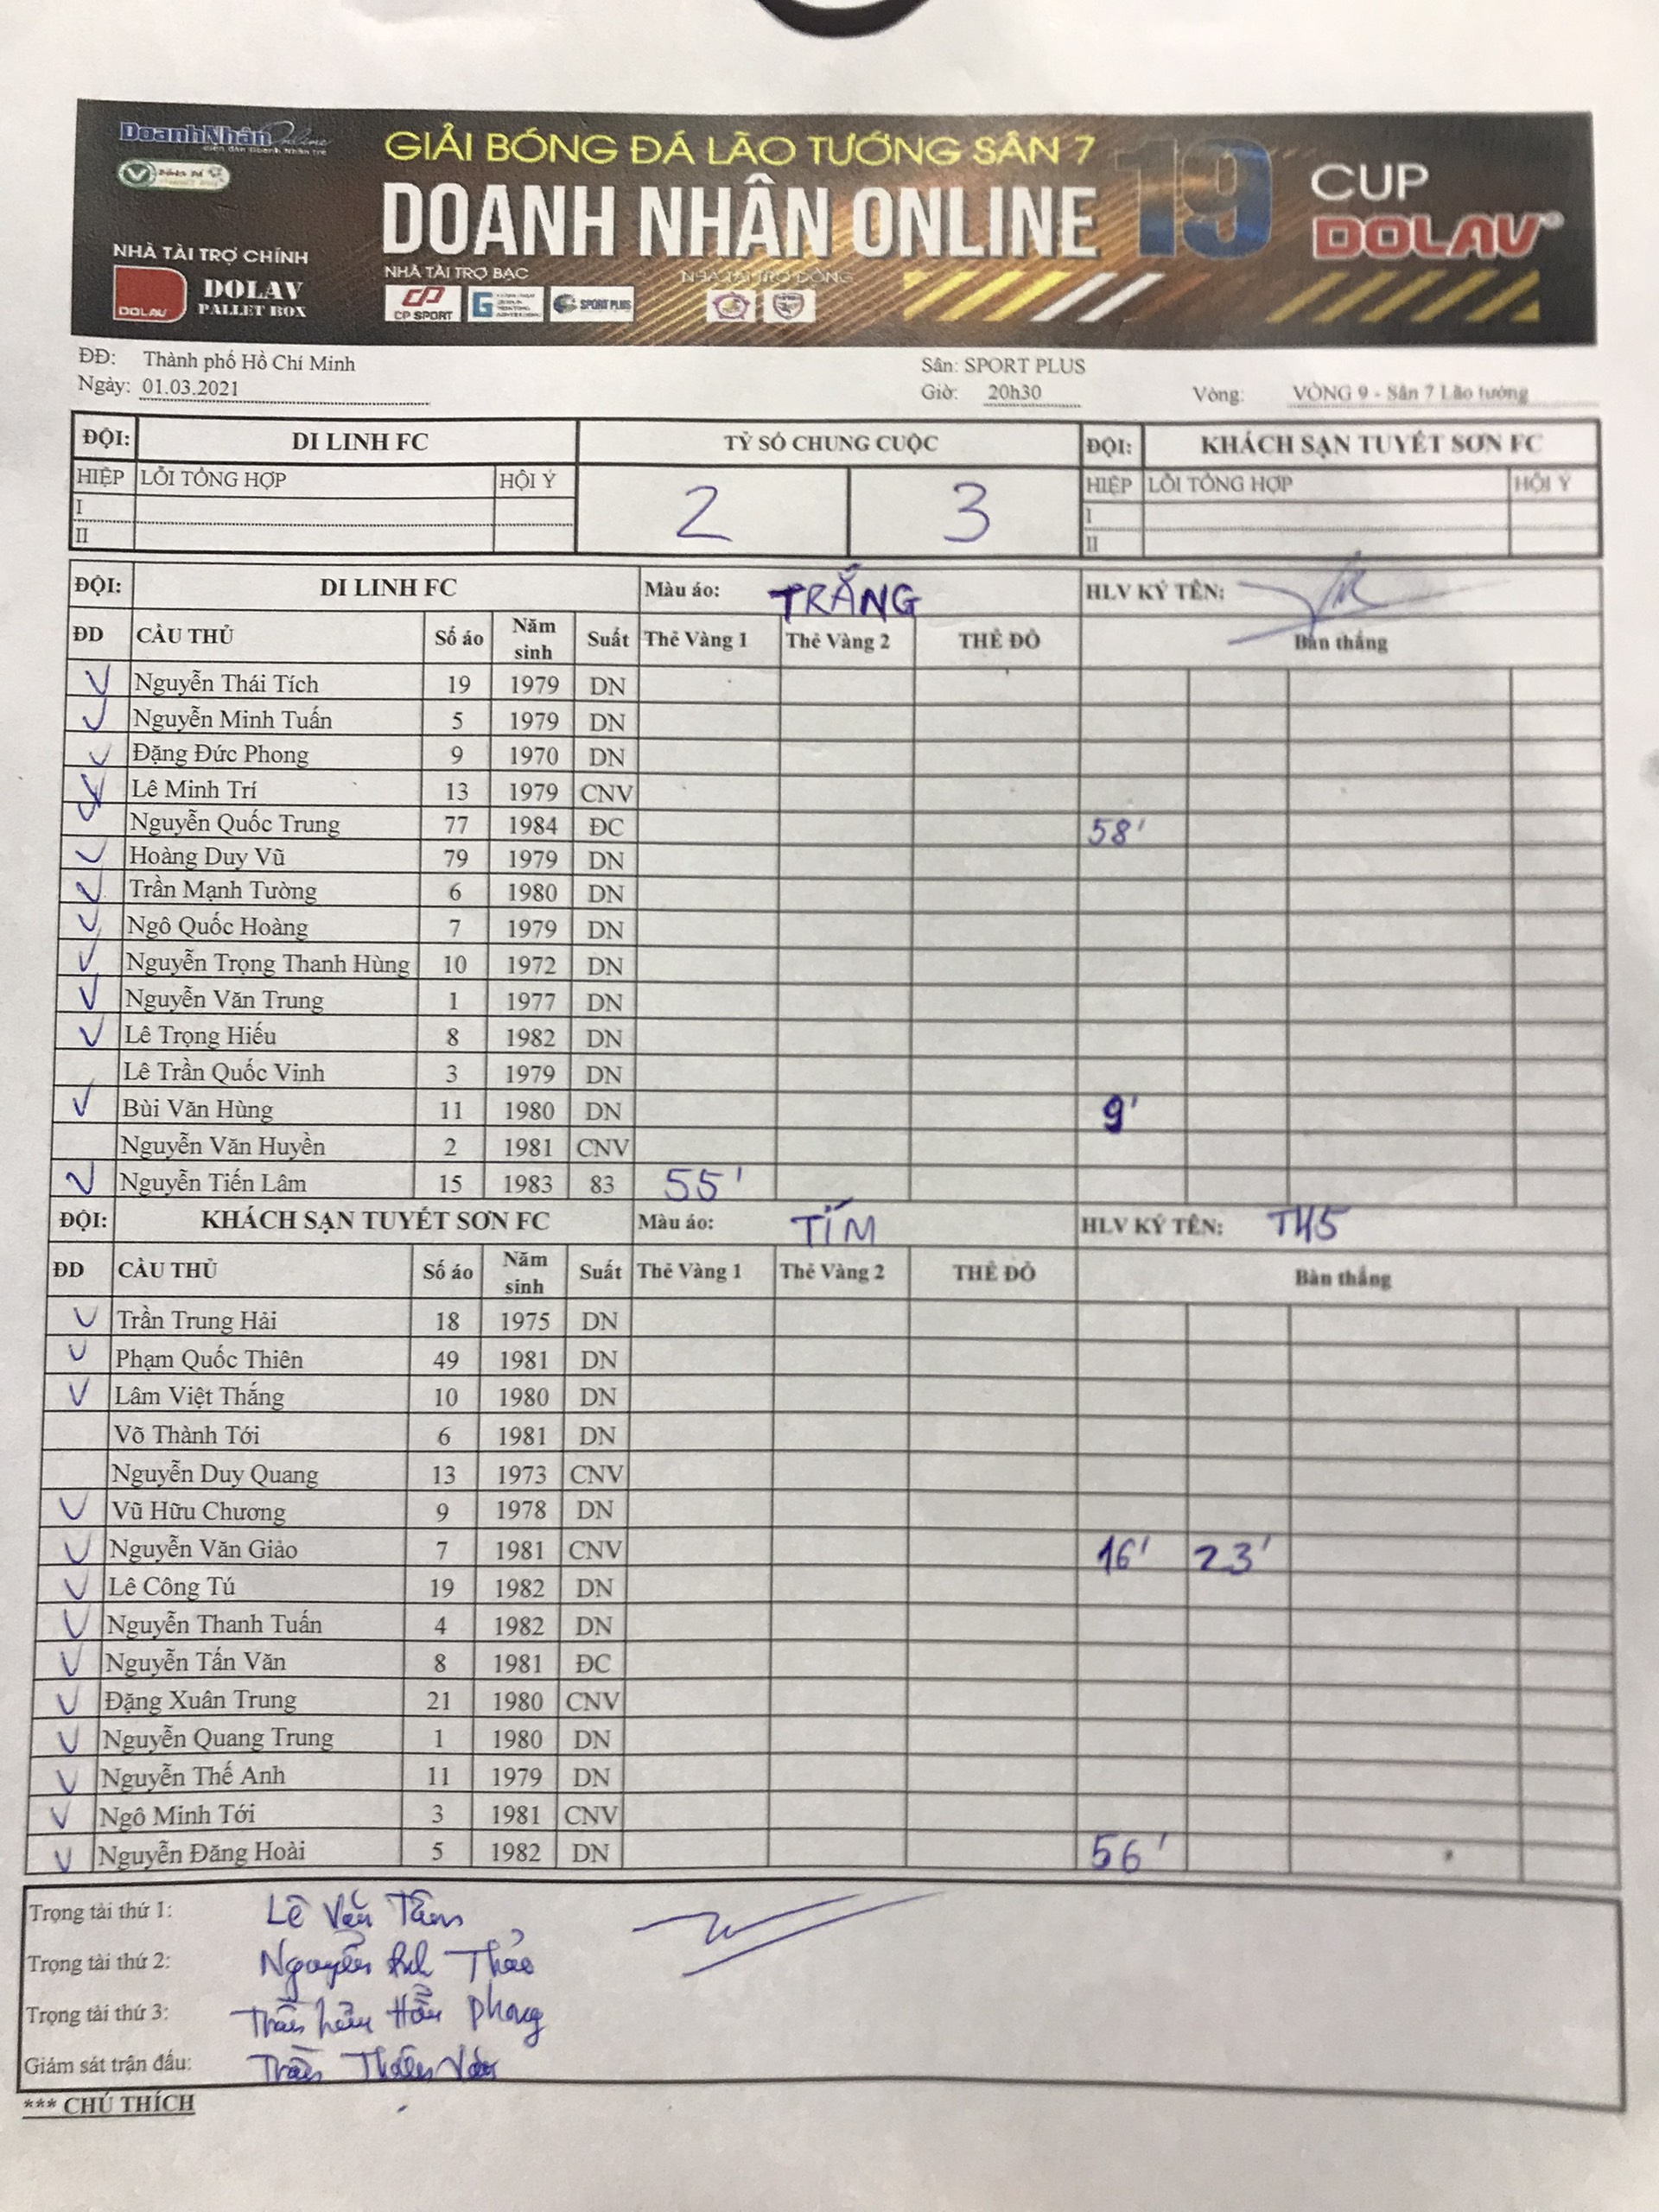 DoanhNhân Online
GIẢI BÓNG ĐÁ LÃO TƯỚNG SÂN 7
DOANH NHÂN ONLINE 19
CUP
DOLAV
NHÀ TÀI TRỢ CHÍNH
DOLAV
DOLAV
PALLET BOX
NHÀ TÀI TRỢ BẠC
CP SPORT
SPORT PLUS
NHÀ TÀI TRỢ ĐỒNG
ĐĐ: Thành phố Hồ Chí Minh Sân: SPORT PLUS
Ngày: 01.03.2021 Giờ: 20h30 Vòng: VÒNG 9 - Sân 7 Lão tướng
ĐỘI: DI LINH FC TỶ SỐ CHUNG CUỘC ĐỘI: KHÁCH SẠN TUYẾT SƠN FC
HIỆP LỖI TỔNG HỢP HỘI Ý 2 3 HIỆP LỖI TỔNG HỢP HỘI Ý
I I
II II
ĐỘI: DI LINH FC Màu áo: TRẮNG HLV KÝ TÊN:
ĐD CẦU THỦ Số áo Năm sinh Suất Thẻ Vàng 1 Thẻ Vàng 2 THẺ ĐỎ Bàn thắng
Nguyễn Thái Tích 19 1979 DN
Nguyễn Minh Tuấn 5 1979 DN
Đặng Đức Phong 9 1970 DN
Lê Minh Trí 13 1979 CNV
Nguyễn Quốc Trung 77 1984 ĐC 58'
Hoàng Duy Vũ 79 1979 DN
Trần Mạnh Tường 6 1980 DN
Ngô Quốc Hoàng 7 1979 DN
Nguyễn Trọng Thanh Hùng 10 1972 DN
Nguyễn Văn Trung 1 1977 DN
Lê Trọng Hiếu 8 1982 DN
Lê Trần Quốc Vinh 3 1979 DN
Bùi Văn Hùng 11 1980 DN 9'
Nguyễn Văn Huyền 2 1981 CNV
Nguyễn Tiến Lâm 15 1983 83 55'
ĐỘI: KHÁCH SẠN TUYẾT SƠN FC Màu áo: TÍM HLV KÝ TÊN: TH5
ĐD CẦU THỦ Số áo Năm sinh Suất Thẻ Vàng 1 Thẻ Vàng 2 THẺ ĐỎ Bàn thắng
Trần Trung Hải 18 1975 DN
Phạm Quốc Thiên 49 1981 DN
Lâm Việt Thắng 10 1980 DN
Võ Thành Tới 6 1981 DN
Nguyễn Duy Quang 13 1973 CNV
Vũ Hữu Chương 9 1978 DN
Nguyễn Văn Giảo 7 1981 CNV 16' 23'
Lê Công Tú 19 1982 DN
Nguyễn Thanh Tuấn 4 1982 DN
Nguyễn Tấn Văn 8 1981 ĐC
Đặng Xuân Trung 21 1980 CNV
Nguyễn Quang Trung 1 1980 DN
Nguyễn Thế Anh 11 1979 DN
Ngô Minh Tới 3 1981 CNV
Nguyễn Đăng Hoài 5 1982 DN 56'
Trọng tài thứ 1: Lê Văn Tâm
Trọng tài thứ 2: Nguyễn Anh Thảo
Trọng tài thứ 3: Phong
Giám sát trận đấu: Trần
*** CHÚ THÍCH